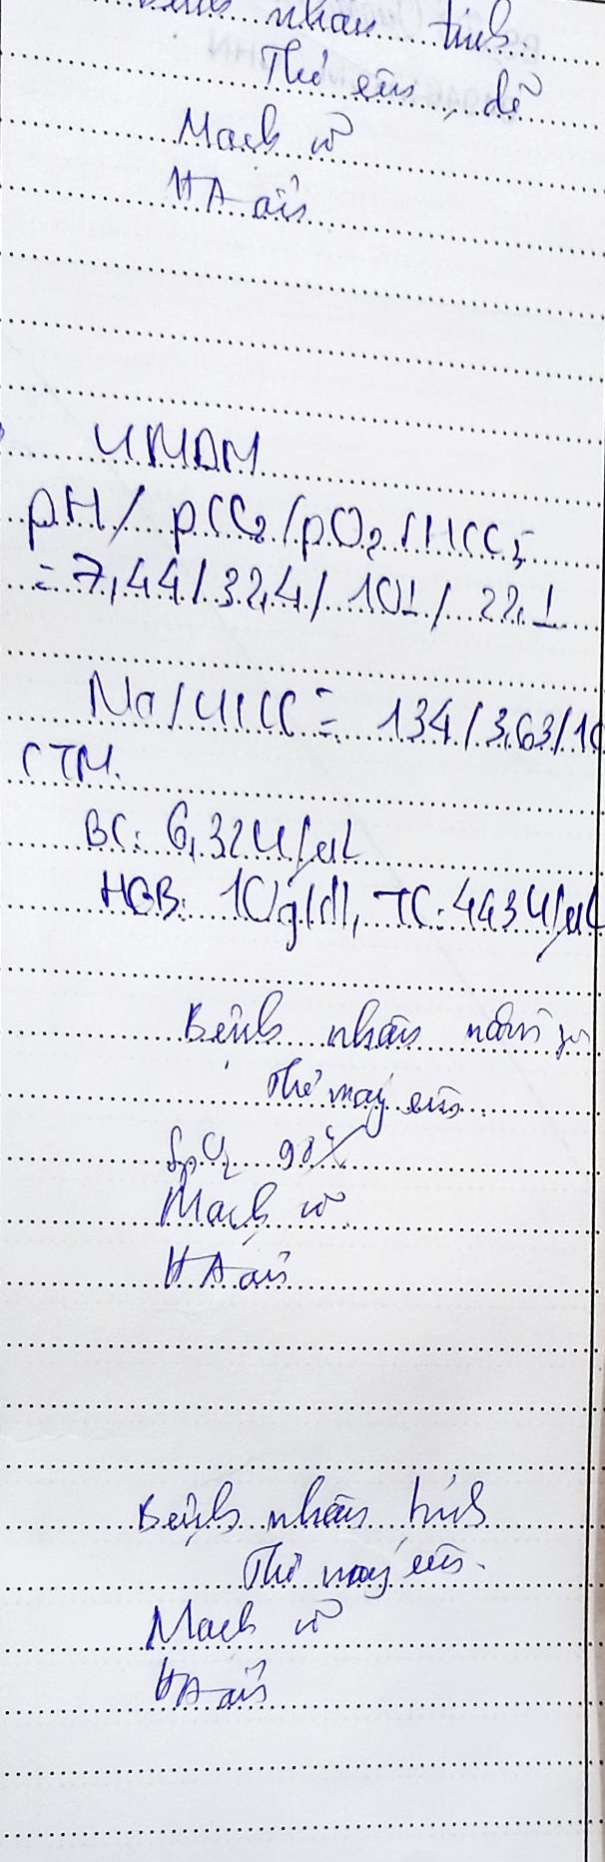 Bệnh nhân tỉnh
Thở êm, dễ
Mạch rõ
HA ổn
KMĐM
pH/ pCO2/pO2/HCO3
= 7,44/32,4/ 101/ 22,1
Na/K/Cl = 134/3,63/10
CTM.
BC: 6,32K/µL
HGB: 10g/dl, TC: 443K/µL
Bệnh nhân nằm
Thở máy êm.
SpO2 98%
Mạch rõ
HA ổn
Bệnh nhân tỉnh
Thở máy êm.
Mạch rõ
HA ổn